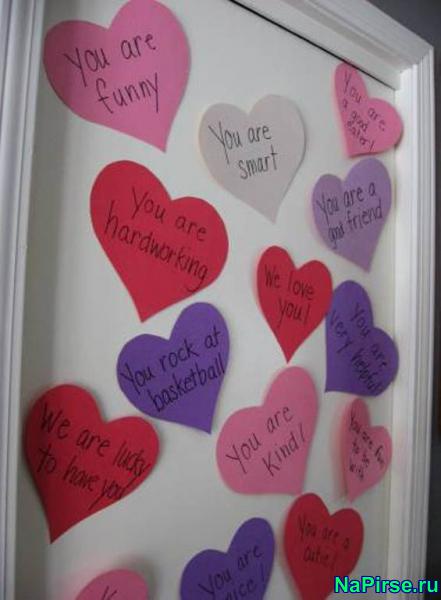 You are
funny
You are
smart
You are
a good
eater!
You are
hardworking
You are a
good friend
We love
you!
You are
very helpful!
You rock at
basketball
You are
Kind!
You are fun
to be
with
We are lucky
to have you
You are a
cutie!
You are
NaPirse.ru